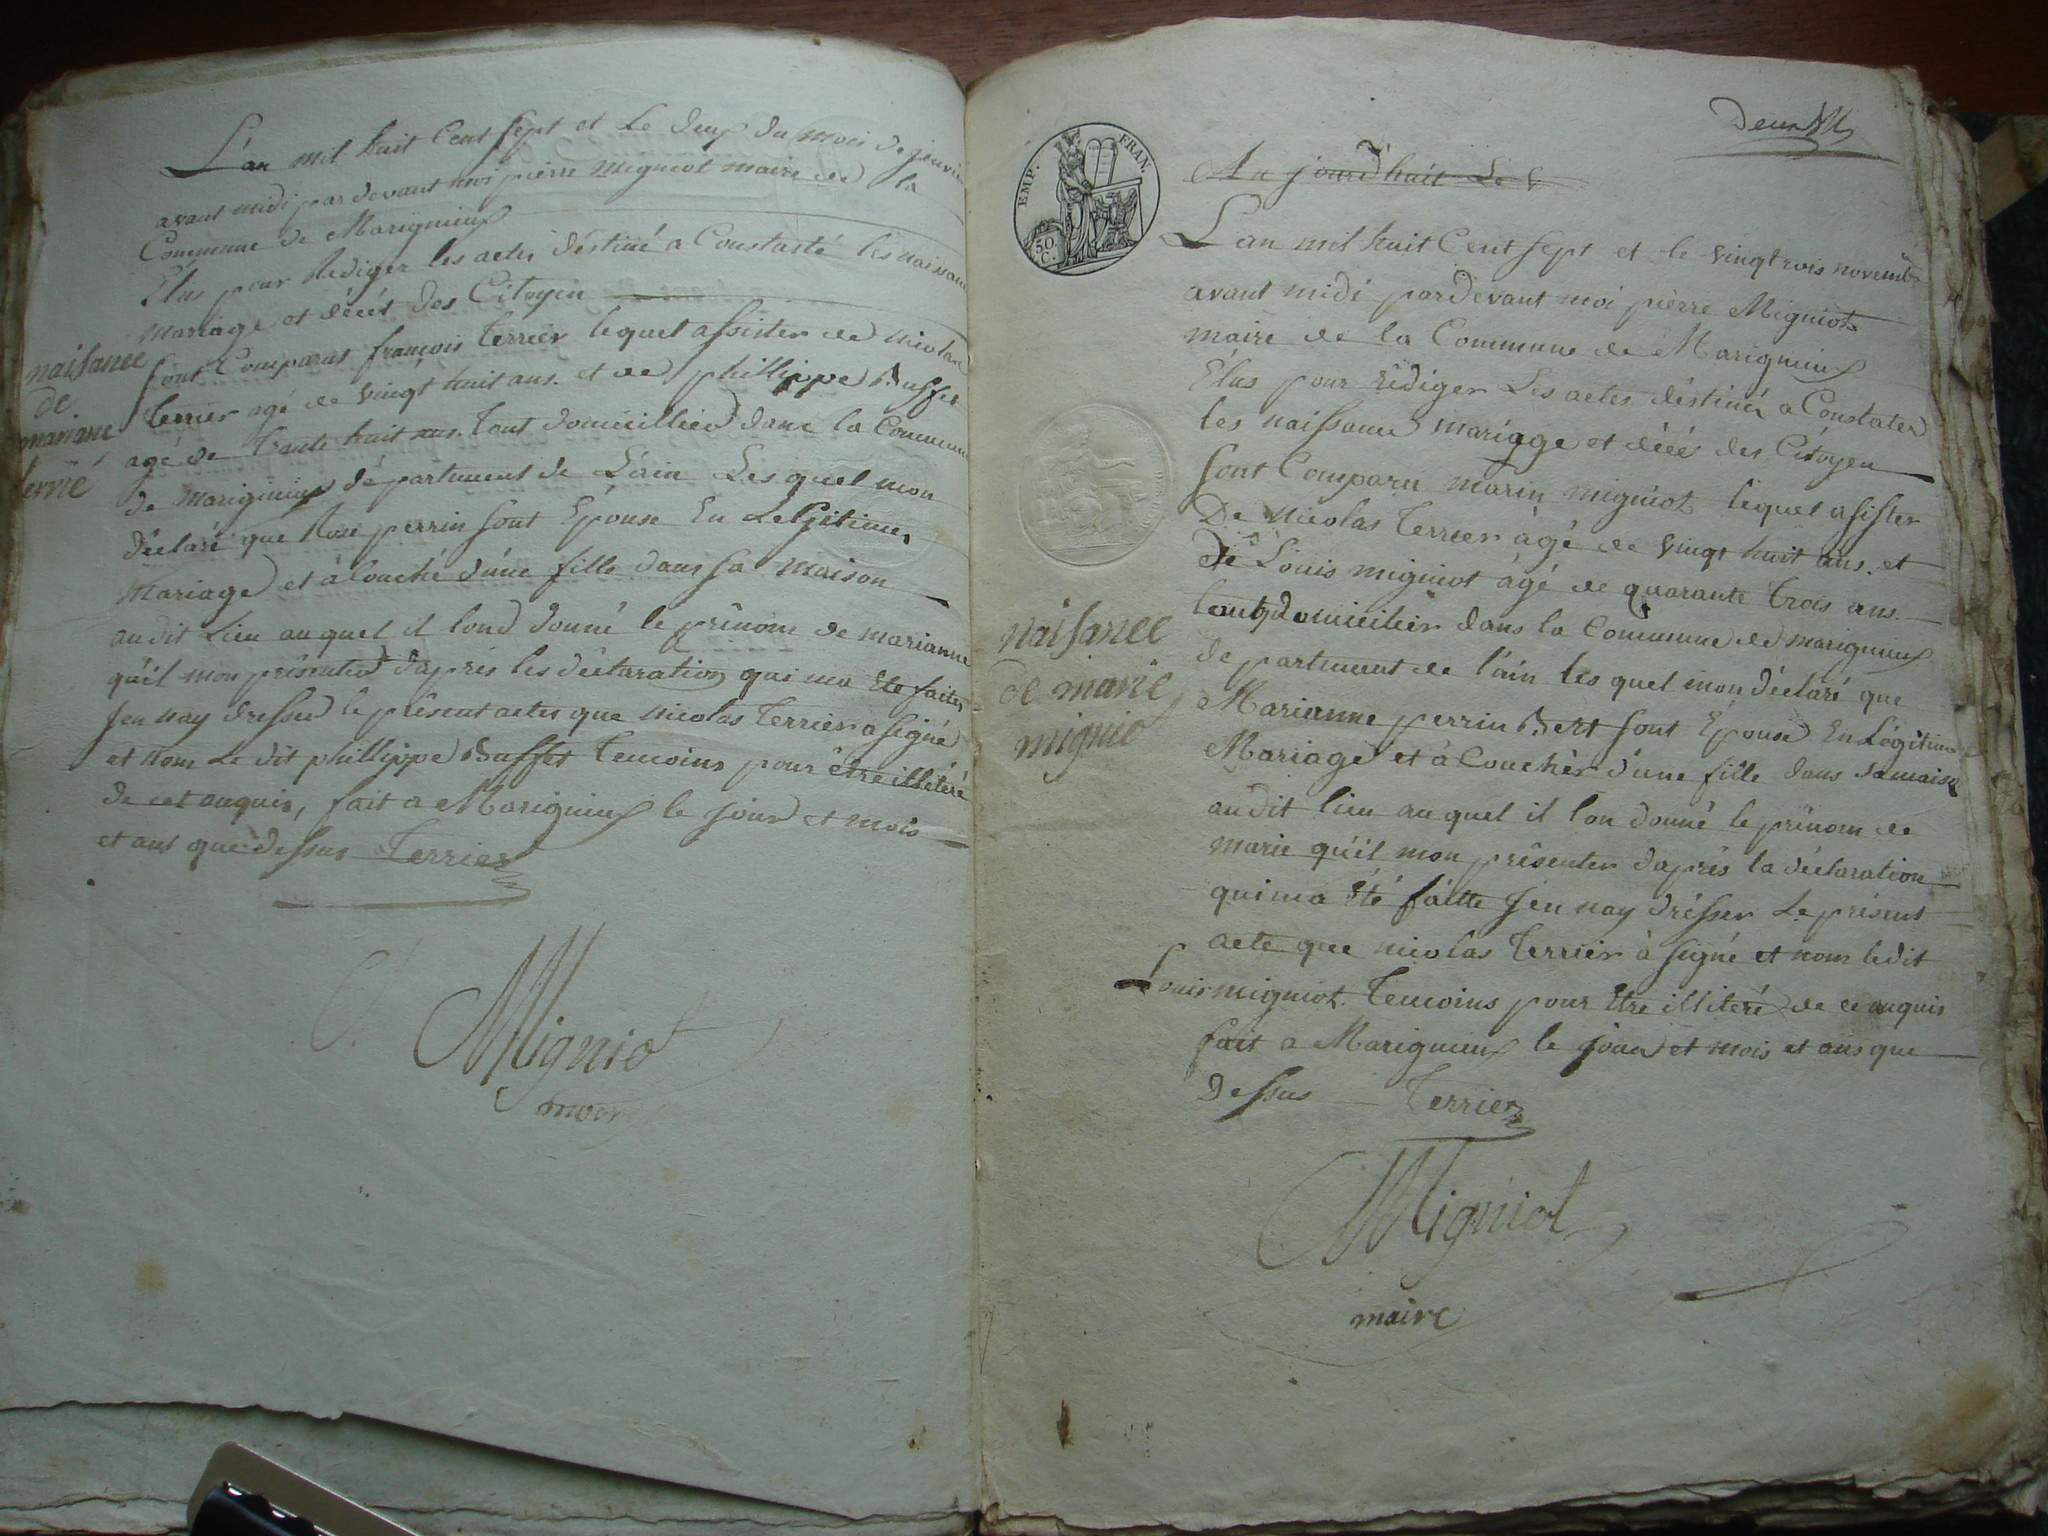 L'an mil huit Cent sept et Le deux du mois de jenvie
avant midi par devant moi pierre migniot maire de la
Commune de Marignieux
Elus pour Rédiger les actes déstiné a Constaté les naissan
mariage et décét des Citoyen
sont Comparus françois terrier lequel assister de nicolas
terrier agé de vingt huit ans. et de phillippe Buffet
agé de trante huit ans. tout domicillier dans la Commune
de marignieux département de L'ain Les quel mon
déclaré que Rose perrin sont Epouse En Legitimer
mariage et à Couché d'une fille dans sa maison
au dit Lieu au quel il lond donné le prénom de marianne
qu'il mon présenter d'aprés les déclaration qui ma Eté faites
Jen nay dresser le présent actes que nicolas terrier a signé
et nom Le dit phillippe Buffet temoins pour être illétéré
de cet anquis, fait a Marignieux le jour et mois
et ans que dessus Terrier
Migniot
maire
naisance
de
marianne
terrié
EMP. FRAN.
50
C.
Deux
Au jourd'huit Le V
L'an mil huit Cent sept et le vingtrois novembr
avant midi pardevant moi pierre Migniot
maire de la Commune de Marignieux
Elus pour rédiger Les actes déstiner a Constater
les naissance mariage et décés des Citoyen
sont Comparu marin migniot lequel assister
De nicolas terrier àgé de vingt huit ans. et
De Louis migniot àgé de quarante trois ans.
tout domicilier dans la Commune de marignieux
departement de l'ain les quel mon déclaré que
Marianne perrin Bert sont Epouse En Légitime
Mariage et à Couchér d'une fille dans sa maison
au dit lieu au quel il lon donné le prénom de
marie qu'il mon présenter d'aprés la déclaration
qui ma Eté faitte Jen nay drésser Le présent
acte que nicolas terrier à signé et nom ledit
Louis migniot. temoins pour Etre illiteré de ce anquis
fait a Marignieux le jour et mois et ans que
Dessus Terrier
Migniot
maire
naisance
de marie
migniot